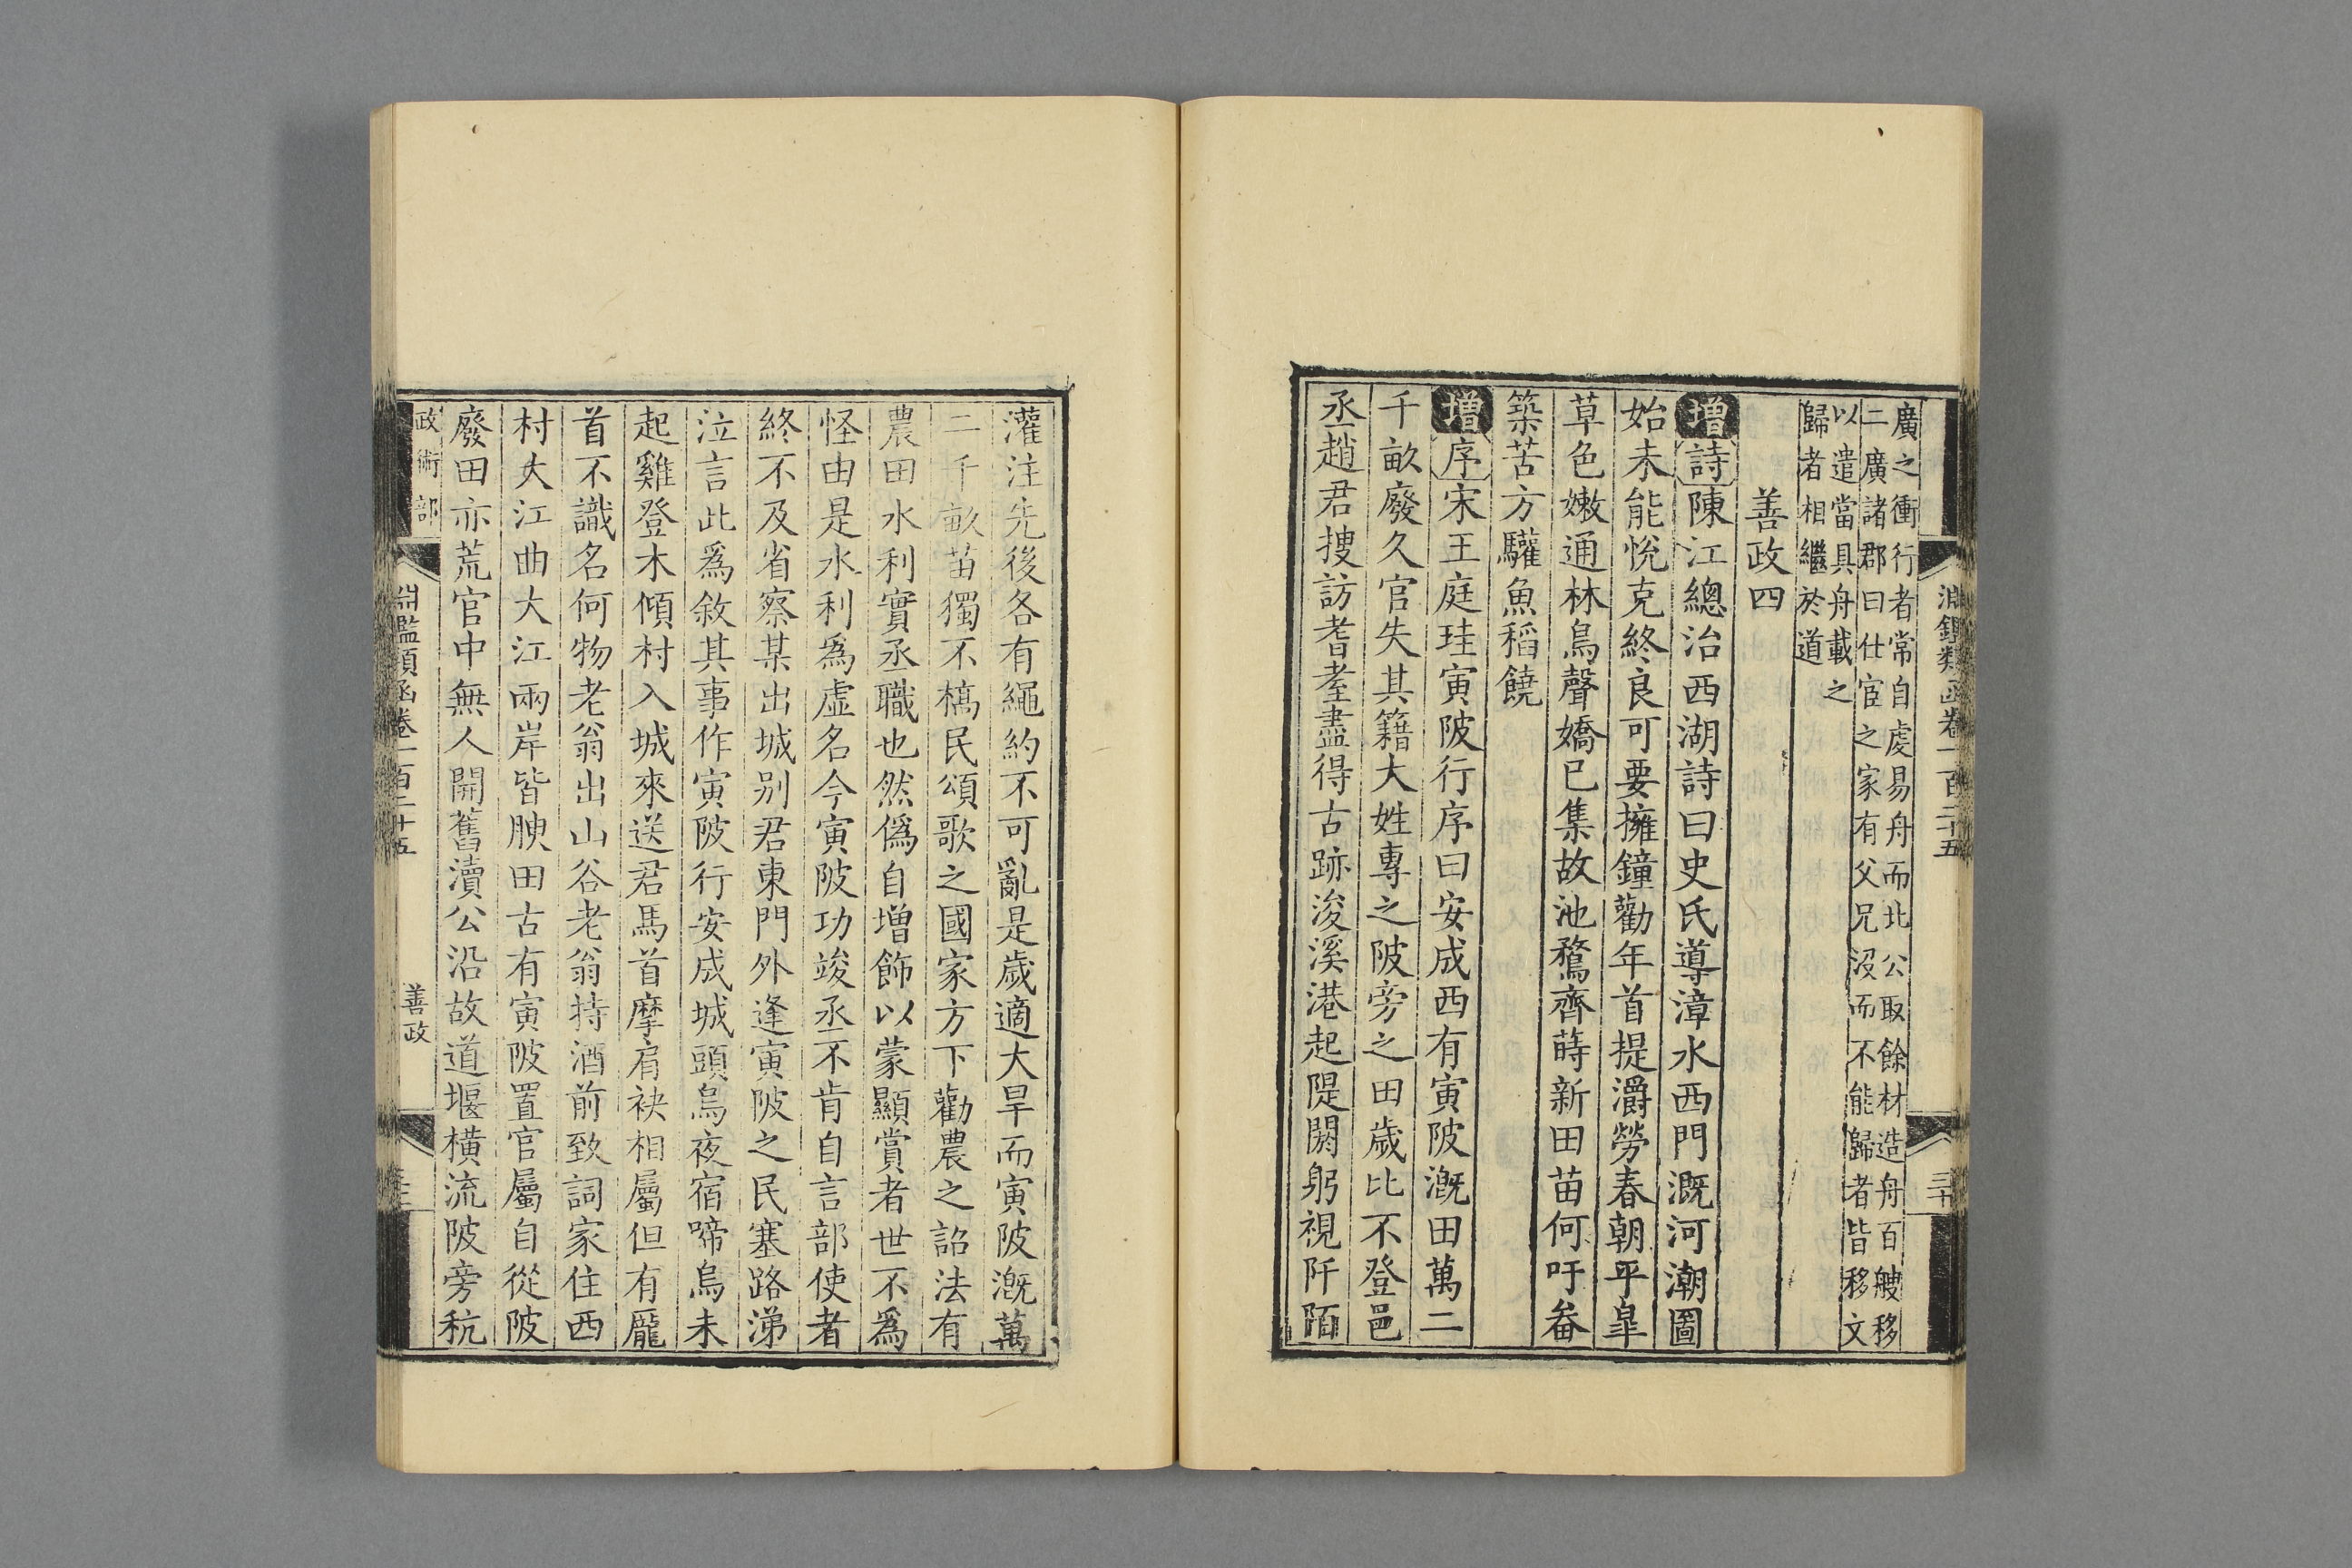 淵鑑類函卷一百二十五
三十
廣之衝行者常自虔易舟而北公取餘材造舟百艘移
二廣諸郡曰仕宦之家有父兄沒而不能歸者皆移文
以遣當具舟載之
歸者相繼於道
善政四
增詩陳江總治西湖詩曰史氏導漳水西門溉河潮圖
始未能悅克終良可要擁鐘勸年首提灂勞春朝平皐
草色嫩通林鳥聲嬌已集故池鶩齊蒔新田苗何吁畚
築苦方驩魚稻饒
增序宋王庭珪寅陂行序曰安成西有寅陂溉田萬二
千畝廢久官失其籍大姓專之陂旁之田歲比不登邑
丞趙君搜訪耆耋盡得古跡浚溪港起隄閼躬視阡陌
灌注先後各有繩約不可亂是歲適大旱而寅陂溉萬
二千畝苗獨不槁民頌歌之國家方下勸農之詔法有
農田水利實丞職也然僞自增飾以蒙顯賞者世不爲
怪由是水利爲虛名今寅陂功竣丞不肯自言部使者
終不及省察某出城别君東門外逢寅陂之民塞路涕
泣言此爲敘其事作寅陂行安成城頭烏夜宿啼烏未
起雞登木傾村入城來送君馬首摩肩袂相屬但有龐
首不識名何物老翁出山谷老翁持酒前致詞家住西
村大江曲大江兩岸皆腴田古有寅陂置官屬自從陂
廢田亦荒官中無人開舊瀆公沿故道堰橫流陂旁秔
政術部
淵鑑類函卷一百二十五
善政